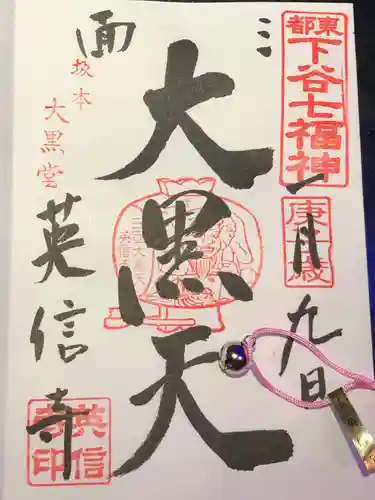 東都
下谷七福神
庚子歳
一月九日
三面
大黒天
坂本
大黒堂
英信寺
英信
寺印